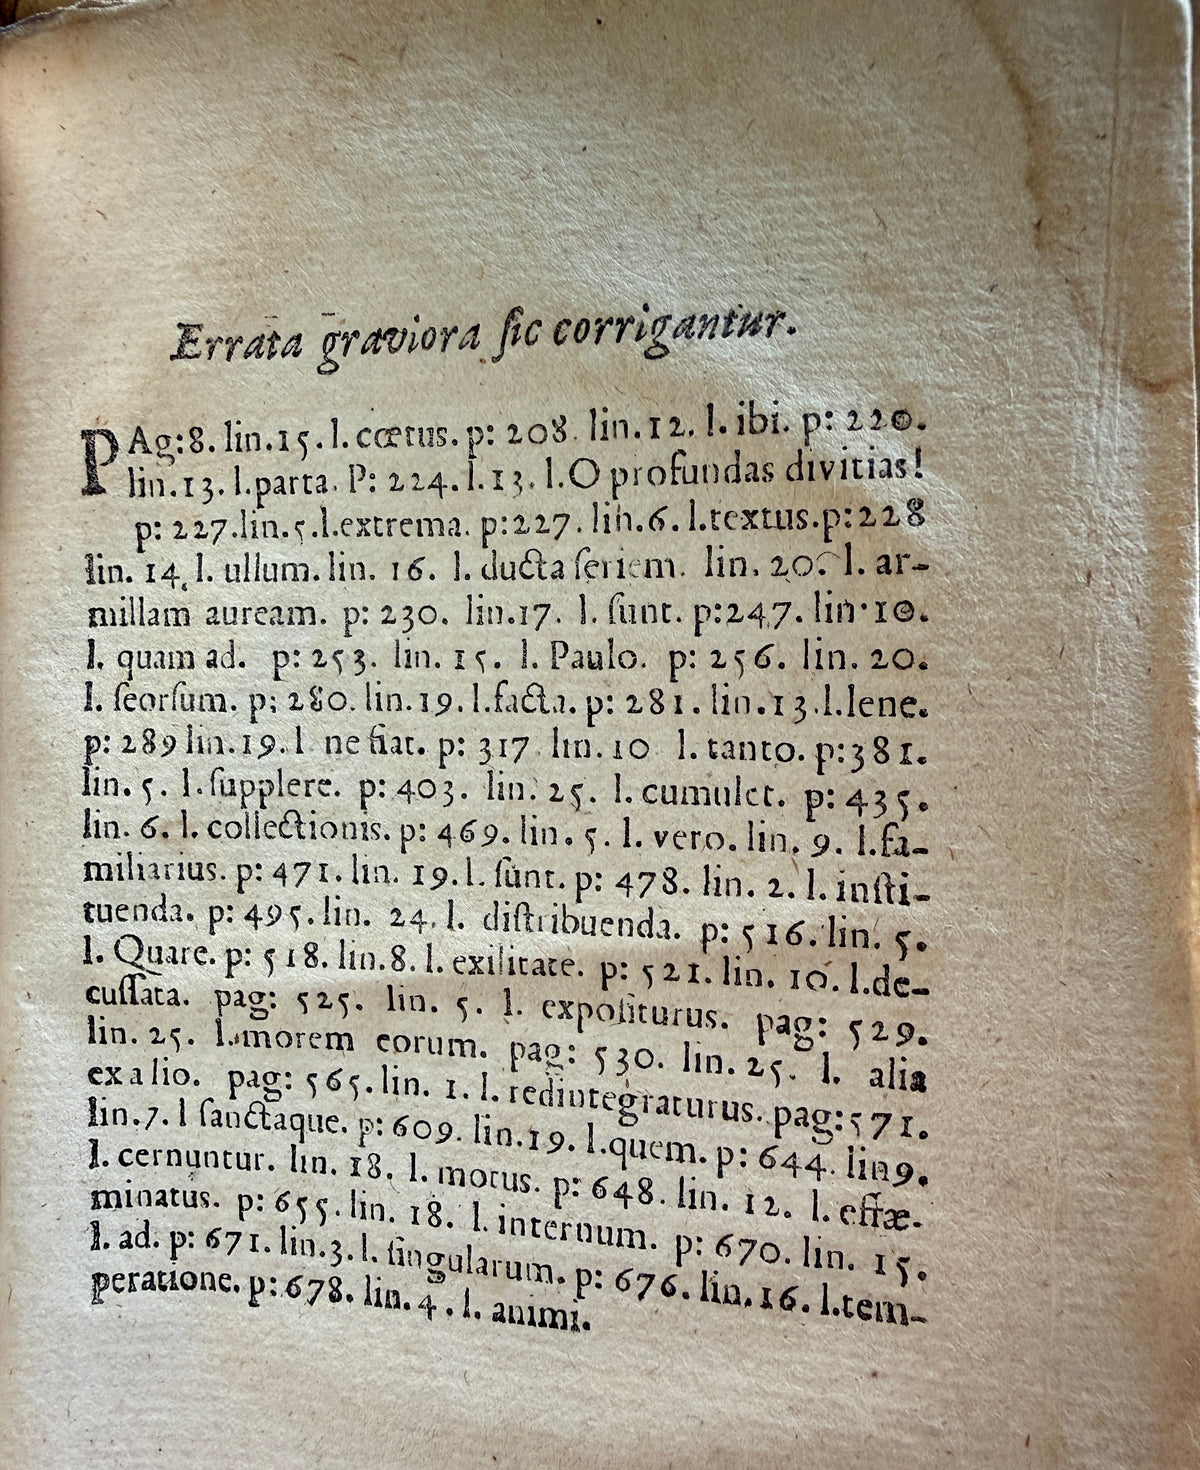 Errata graviora ſic corrigantur.
PAg:8. lin.15. l. cœtus. p: 208. lin.12. l. ibi. p: 220.
lin.13. l.parta. P: 224. l.13. l.O profundas divitias!
p: 227.lin.5.l.extrema. p:227. lin.6. l.textus.p:228
lin. 14. l. ullum. lin. 16. l. ducta ſeriem. lin. 20. l. ar-
millam auream. p: 230. lin.17. l. ſunt. p:247. lin.10.
l. quam ad. p: 253. lin. 15. l. Paulo. p: 256. lin. 20.
l. ſeorſum. p: 280. lin.19. l.facta. p: 281. lin.13.l.lene.
p: 289 lin.19. l ne fiat. p: 317 lin.10 l. tanto. p:381.
lin. 5. l.ſupplere. p: 403. lin. 25. l. cumulet. p: 435.
lin. 6. l. collectionis. p: 469. lin. 5. l. vero. lin. 9. l.fa-
miliarius. p: 471. lin. 19. l. ſunt. p: 478. lin. 2. l. inſti-
tuenda. p: 495. lin. 24. l. diſtribuenda. p: 516. lin. 5.
l. Quare. p: 518. lin.8. l. exilitate. p: 521. lin. 10. l.de-
cuſſata. pag: 525. lin. 5. l. expoſiturus. pag: 529.
lin. 25. l.morem eorum. pag: 530. lin. 25. l. alia
ex alio. pag: 565. lin. 1. l. redintegraturus. pag:571.
lin.7. l ſanctaque. p: 609. lin.19. l.quem. p: 644. lin9.
l. cernuntur. lin. 18. l. motus. p: 648. lin. 12. l. effræ-
minatus. p: 655. lin. 18. l. internum. p: 670. lin. 15.
l. ad. p: 671. lin.3. l. ſingularum. p: 676. lin.16. l.tem-
peratione. p: 678. lin. 4. l. animi.